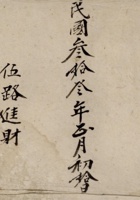 民國叁拾叁年正月初
伍路進財